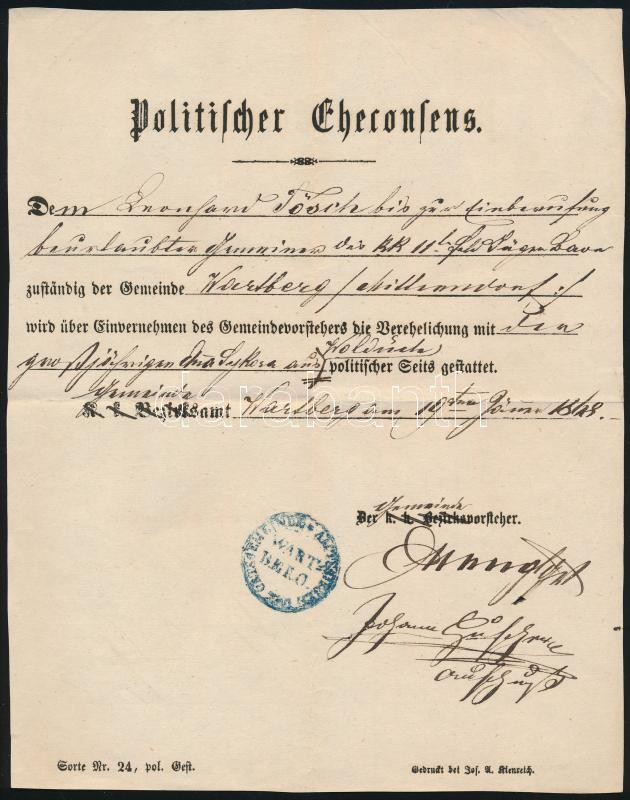 Politischer Eheconsens.
Dem Leonhard Tösch bis zur Einberufung
beurlaubter Gemeiner des KK 11te Feld Jäger Baon
zuständig der Gemeinde Wartberg /:Mitterndorf:/
wird über Einvernehmen des Gemeindevorstehers die Verehelichung mit der
großjährigen aus politischer Seits gestattet.
Gemeinde
K. k. Bezirksamt Wartberg am 19ten Jänner
Gemeinde
Der k. k. Bezirksvorsteher.
WARTBERG
Johann
Ausschuß
Sorte Nr. 24, pol. Gest.
Gedruckt bei Jos. A. Kienreich.
darabanth